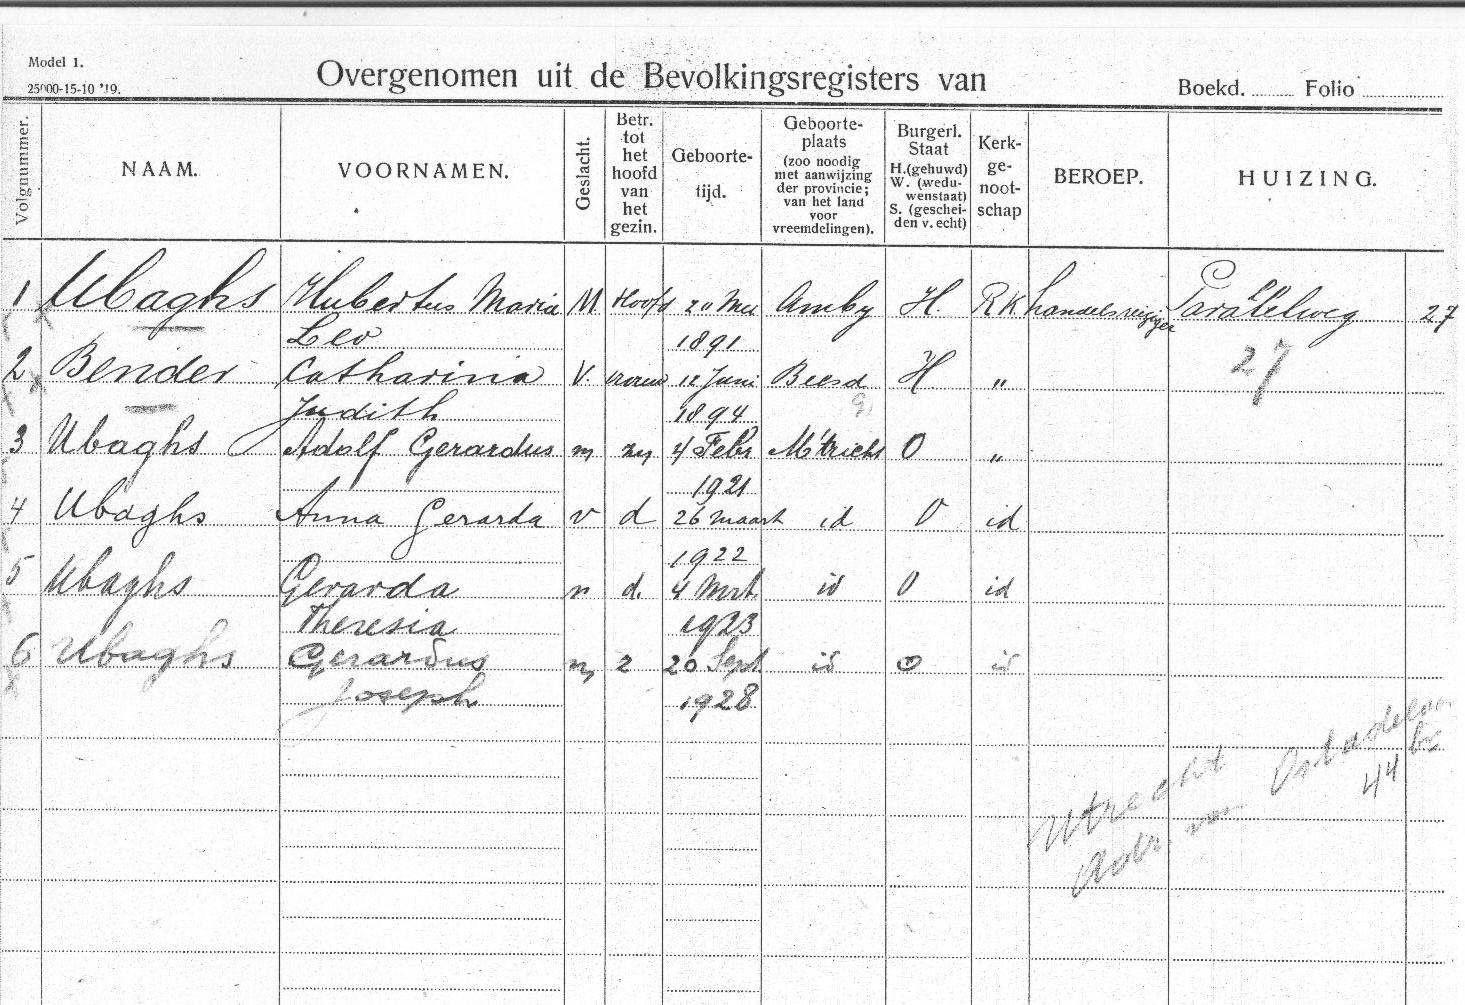 Model 1.
25000-15-10 '19.
Overgenomen uit de Bevolkingsregisters van
Boekd. Folio
Volgnummer.
NAAM.
VOORNAMEN.
Geslacht.
Betr. tot het hoofd van het gezin.
Geboorte-
tijd.
Geboorte-
plaats
(zoo noodig
met aanwijzing
der provincie;
van het land
voor
vreemdelingen).
Burgerl.
Staat
H.(gehuwd)
W. (wedu-
wenstaat)
S. (geschei-
den v. echt)
Kerk-
ge-
noot-
schap
BEROEP.
HUIZING.
1 Ubaghs Hubertus Maria M Hoofd 20 Mei Amby H. RK handelsreiziger 27
Leo 1891
2 Bender Catharina V. vrouw Juni Beesd H "
27
Judith 1894
3 Ubaghs Adolf Gerardus m zn 4 Febr M'tricht O "
1921
4 Ubaghs Anna Gerarda v d 26 maart id O id
1922
5 Ubaghs Gerarda d. 4 Mrt. id O id
Theresia 1923
6 Ubaghs Gerardus m z 20 Sept id O id
Joseph 1928
Utrecht
Adr. van Ostade
44